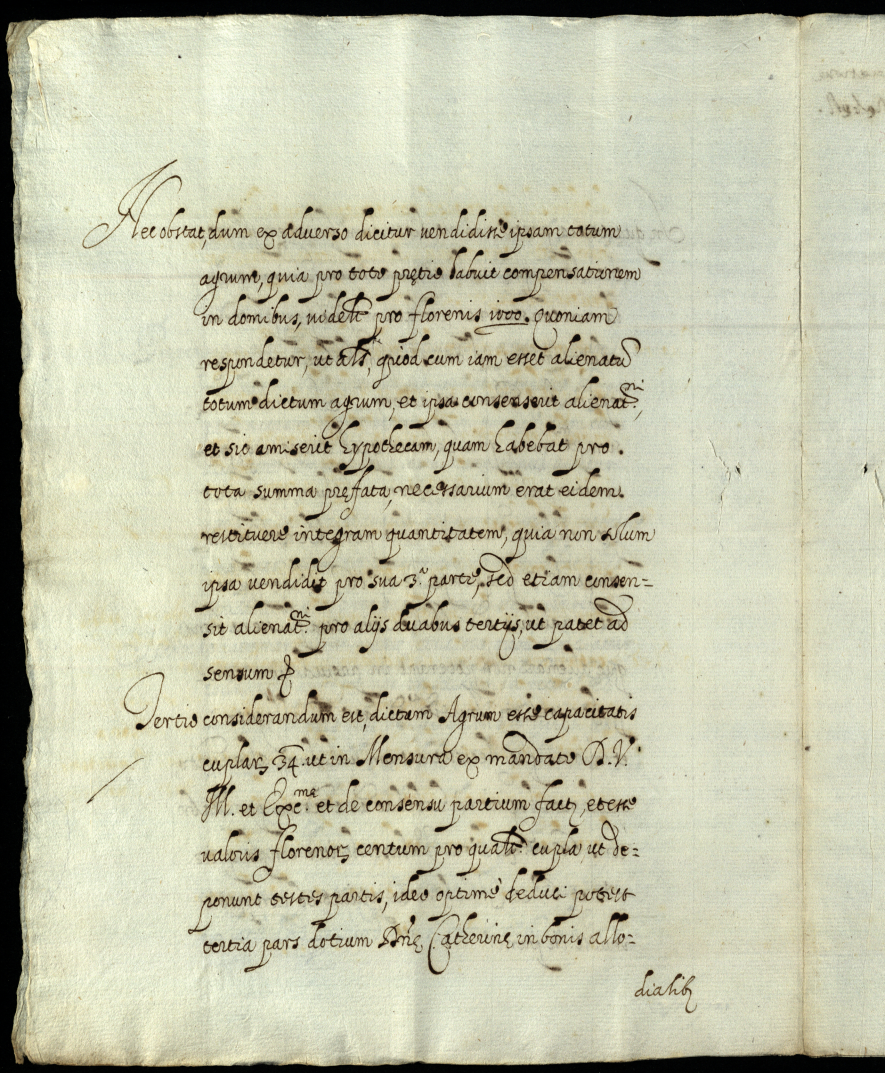 Nec obstat, dum ex adverso dicitur vendidisse ipsam totum
agrum, quia pro toto pretio habuit compensationem
in domibus, videlt pro florenis 1000. Quoniam
respondetur, ut als, quod cum iam esset alienatū
totum dictum agrum, et ipsa consenserit alienatni,
et sic amiserit hypothecam, quam habebat pro
tota summa pręfata, necessarium erat eidem
restituere integram quantitatem, quia non solum
ipsa vendidit pro sua 3.a parte, sed etiam consen=
sit alienatni. pro alijs duabus tertijs, ut patet ad
sensum
Tertio considerandum est, dictum Agrum esse capacitatis
cuplarꝫ 34. ut in Mensura ex mandato D.V.
Ill. et Excme. et de consensu partium factę, et esse
valoris florenorꝫ centum pro qualt. cupla ut de=
ponunt testes partis, ideo optimè deduci potest
tertia pars dotium Dnę Catherinę in bonis allo=
dialibꝫ